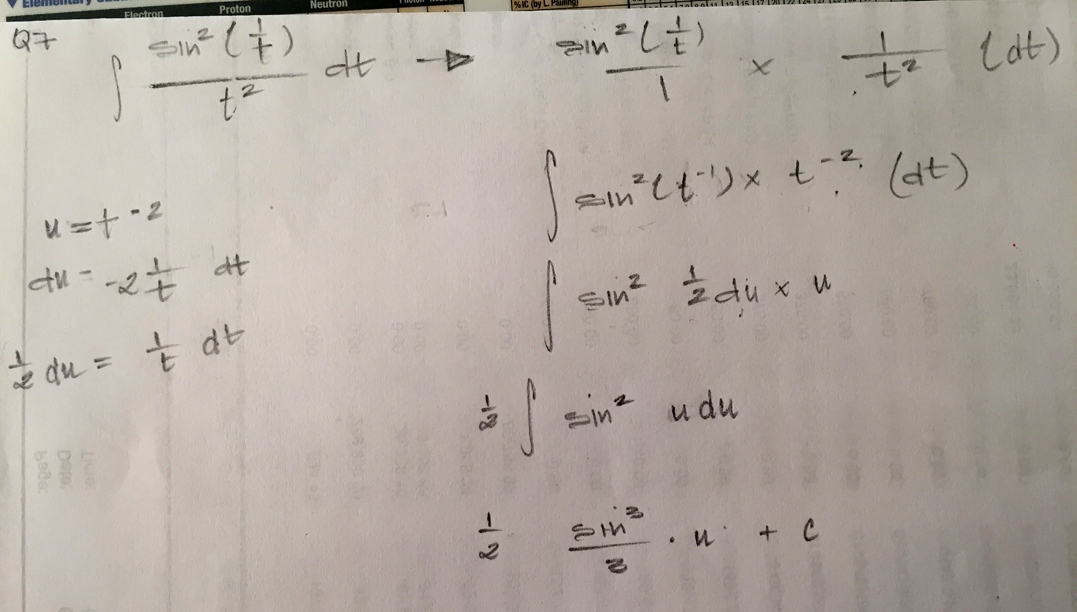 ▼ Elementary
Electron Proton Neutron
% IC (by L Pauling)
Q7 ∫ sin² (1/t) / t² dt → sin² (1/t) / 1 × 1/t² (dt)
∫ sin² (t⁻¹) × t⁻² (dt)
u = t⁻²
du = -2 1/t dt
∫ sin² 1/2 du × u
1/2 du = 1/t dt
1/2 ∫ sin² u du
1/2 sin³/3 · u + c